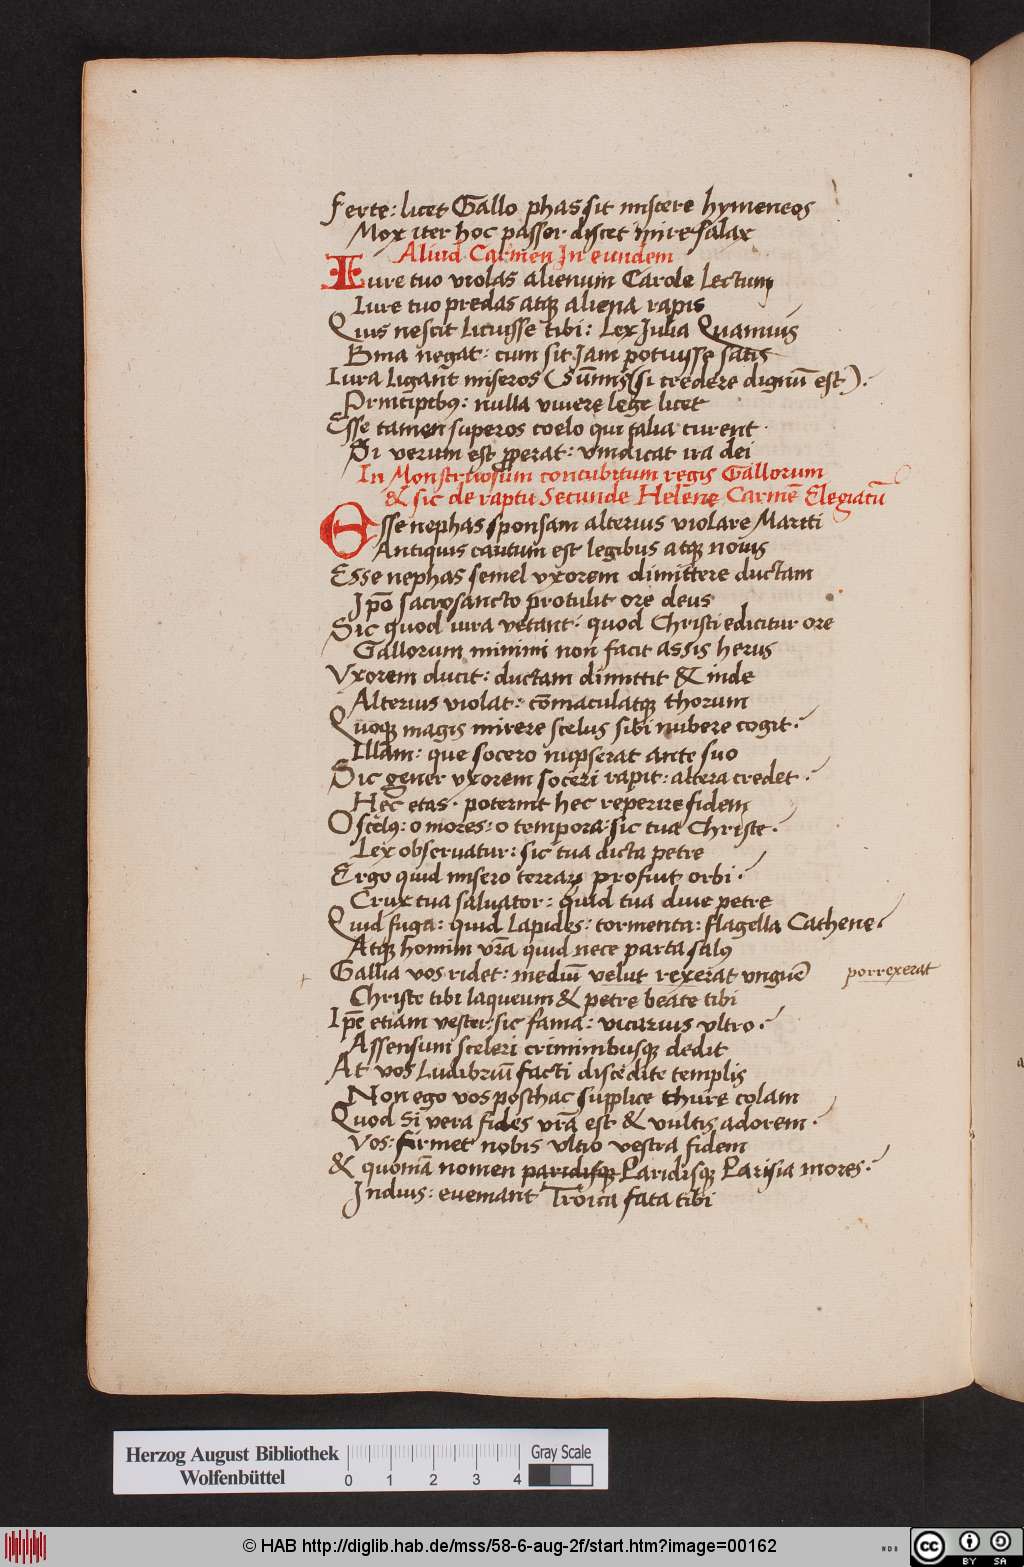 Ferte: licet Gallo phas sit miscere hymeneos
Mox iter hoc passer discet inire salax
Aliud Carmen In eundem
Iure tuo violas alienum Carole Lectum
Iure tuo predas atqꝫ aliena rapis
Quis nescit licuisse tibi: Lex Julia Quamuis
Bina negat: cum sit Jam potuisse satis
Iura ligant miseros (Sūmis (si credere dignū est).
Principibꝰ: nulla viuere lege licet
Esse tamen superos coelo qui talia curent
Si verum est ꝓperat: vindicat ira dei
In Monstruosum concubitum regis Gallorum
& sic de raptu Secunde Helene Carmē Elegiacū
Esse nephas sponsam alterius violare Mariti
Antiquis cautum est legibus atqꝫ nouis
Esse nephas semel vxorem dimittere ductam
Ipō sacrosancto protulit ore deus
Sic quod iura vetant: quod Christi edicitur ore
Gallorum minimi non facit assis herus
Vxorem ducit: ductam dimittit & inde
Alterius violat: cōmaculatqꝫ thorum
Quoqꝫ magis mirere scelus sibi nubere cogit:
Illam: que socero nupserat ante suo
Sic gener vxorem soceri rapit: altera credet:
Hec etas: poterint hec reperire fidem
O scelꝰ: o mores: o tempora: sic tua Christe:
Lex obseruatur: sic tua dicta petre
Ergo quid misero terraꝝ profuit orbi:
Crux tua saluator: quid tua diue petre
Quid fuga: quid Lapides: tormenta: flagella Cathene:
Atqꝫ homini vrā quid nece parta salꝰ
Gallia vos ridet: mediū velut rexerat vnguē porrexerat
Christe tibi laqueum & petre beate tibi
Ipē etiam vester: sic fama: vicarius vltro:
Assensum sceleri criminibusqꝫ dedit
At vos Ludibriū facti discedite templis
Non ego vos posthac supplice thure colam
Quod si vera fides vrā est & vultis adorem:
Vos: firmet nobis vltio vestra fidem
& quoniā nomen paridisqꝫ Paridisqꝫ Parisia mores:
Induis: eueniant Troica fata tibi
Herzog August Bibliothek
Wolfenbüttel
0 1 2 3 4
Gray Scale
© HAB http://diglib.hab.de/mss/58-6-aug-2f/start.htm?image=00162
cc BY SA